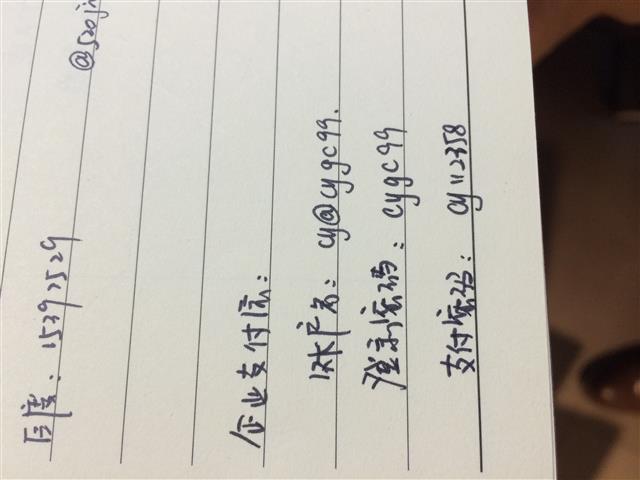 百度: 15392529 @520ji
企业支付宝:
账户名: cy@cygc99.
登录密码: cygc99
支付密码: cy112358